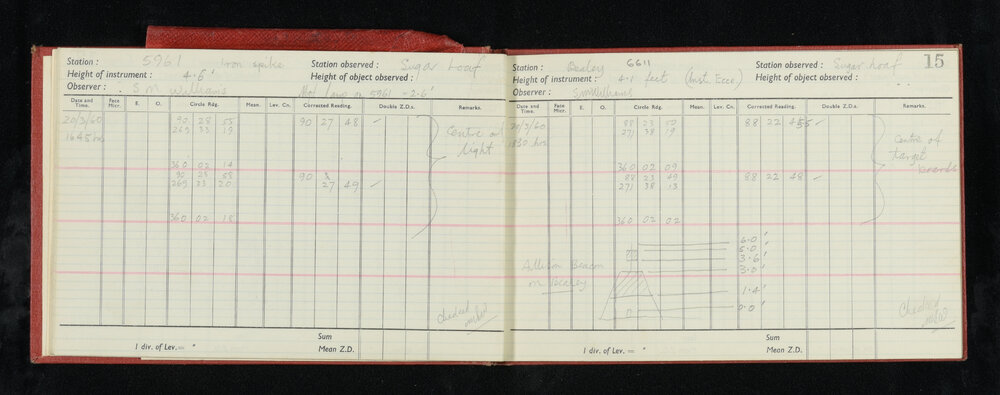 Station : 5961 Iron spike Station observed : Sugar Loaf
Height of instrument : 4.6' Height of object observed :
Observer : S M Williams Hot lamp on 5961 - 2.6'
Date and Time. Face Micr. E. O. Circle Rdg. Mean. Lev. Cn. Corrected Reading. Double Z.D.s. Remarks.
20/3/60 90 28 55 90 27 48 ✓ Centre of
1645 hrs 269 33 19 light
360 02 14
90 28 58 90 27 49 ✓
269 33 20
360 02 18
Checked
1 div. of Lev. = " Sum
Mean Z.D.
15
Station : Bealey 6611 Station observed : Sugar Loaf
Height of instrument : 4.1 feet (Inst. Ecce.) Height of object observed :
Observer : SMWilliams
Date and Time. Face Micr. E. O. Circle Rdg. Mean. Lev. Cn. Corrected Reading. Double Z.D.s. Remarks.
20/3/60 88 23 50 88 22 45 ✓ Centre of
1830 hrs 271 38 19 target
boards
360 02 09
88 23 49 88 22 48 ✓
271 38 13
360 02 02
6.0'
5.0'
3.6'
3.0'
Allison Beacon
on Bealey
1.4'
0.0'
Checked
1 div. of Lev. = " Sum
Mean Z.D.